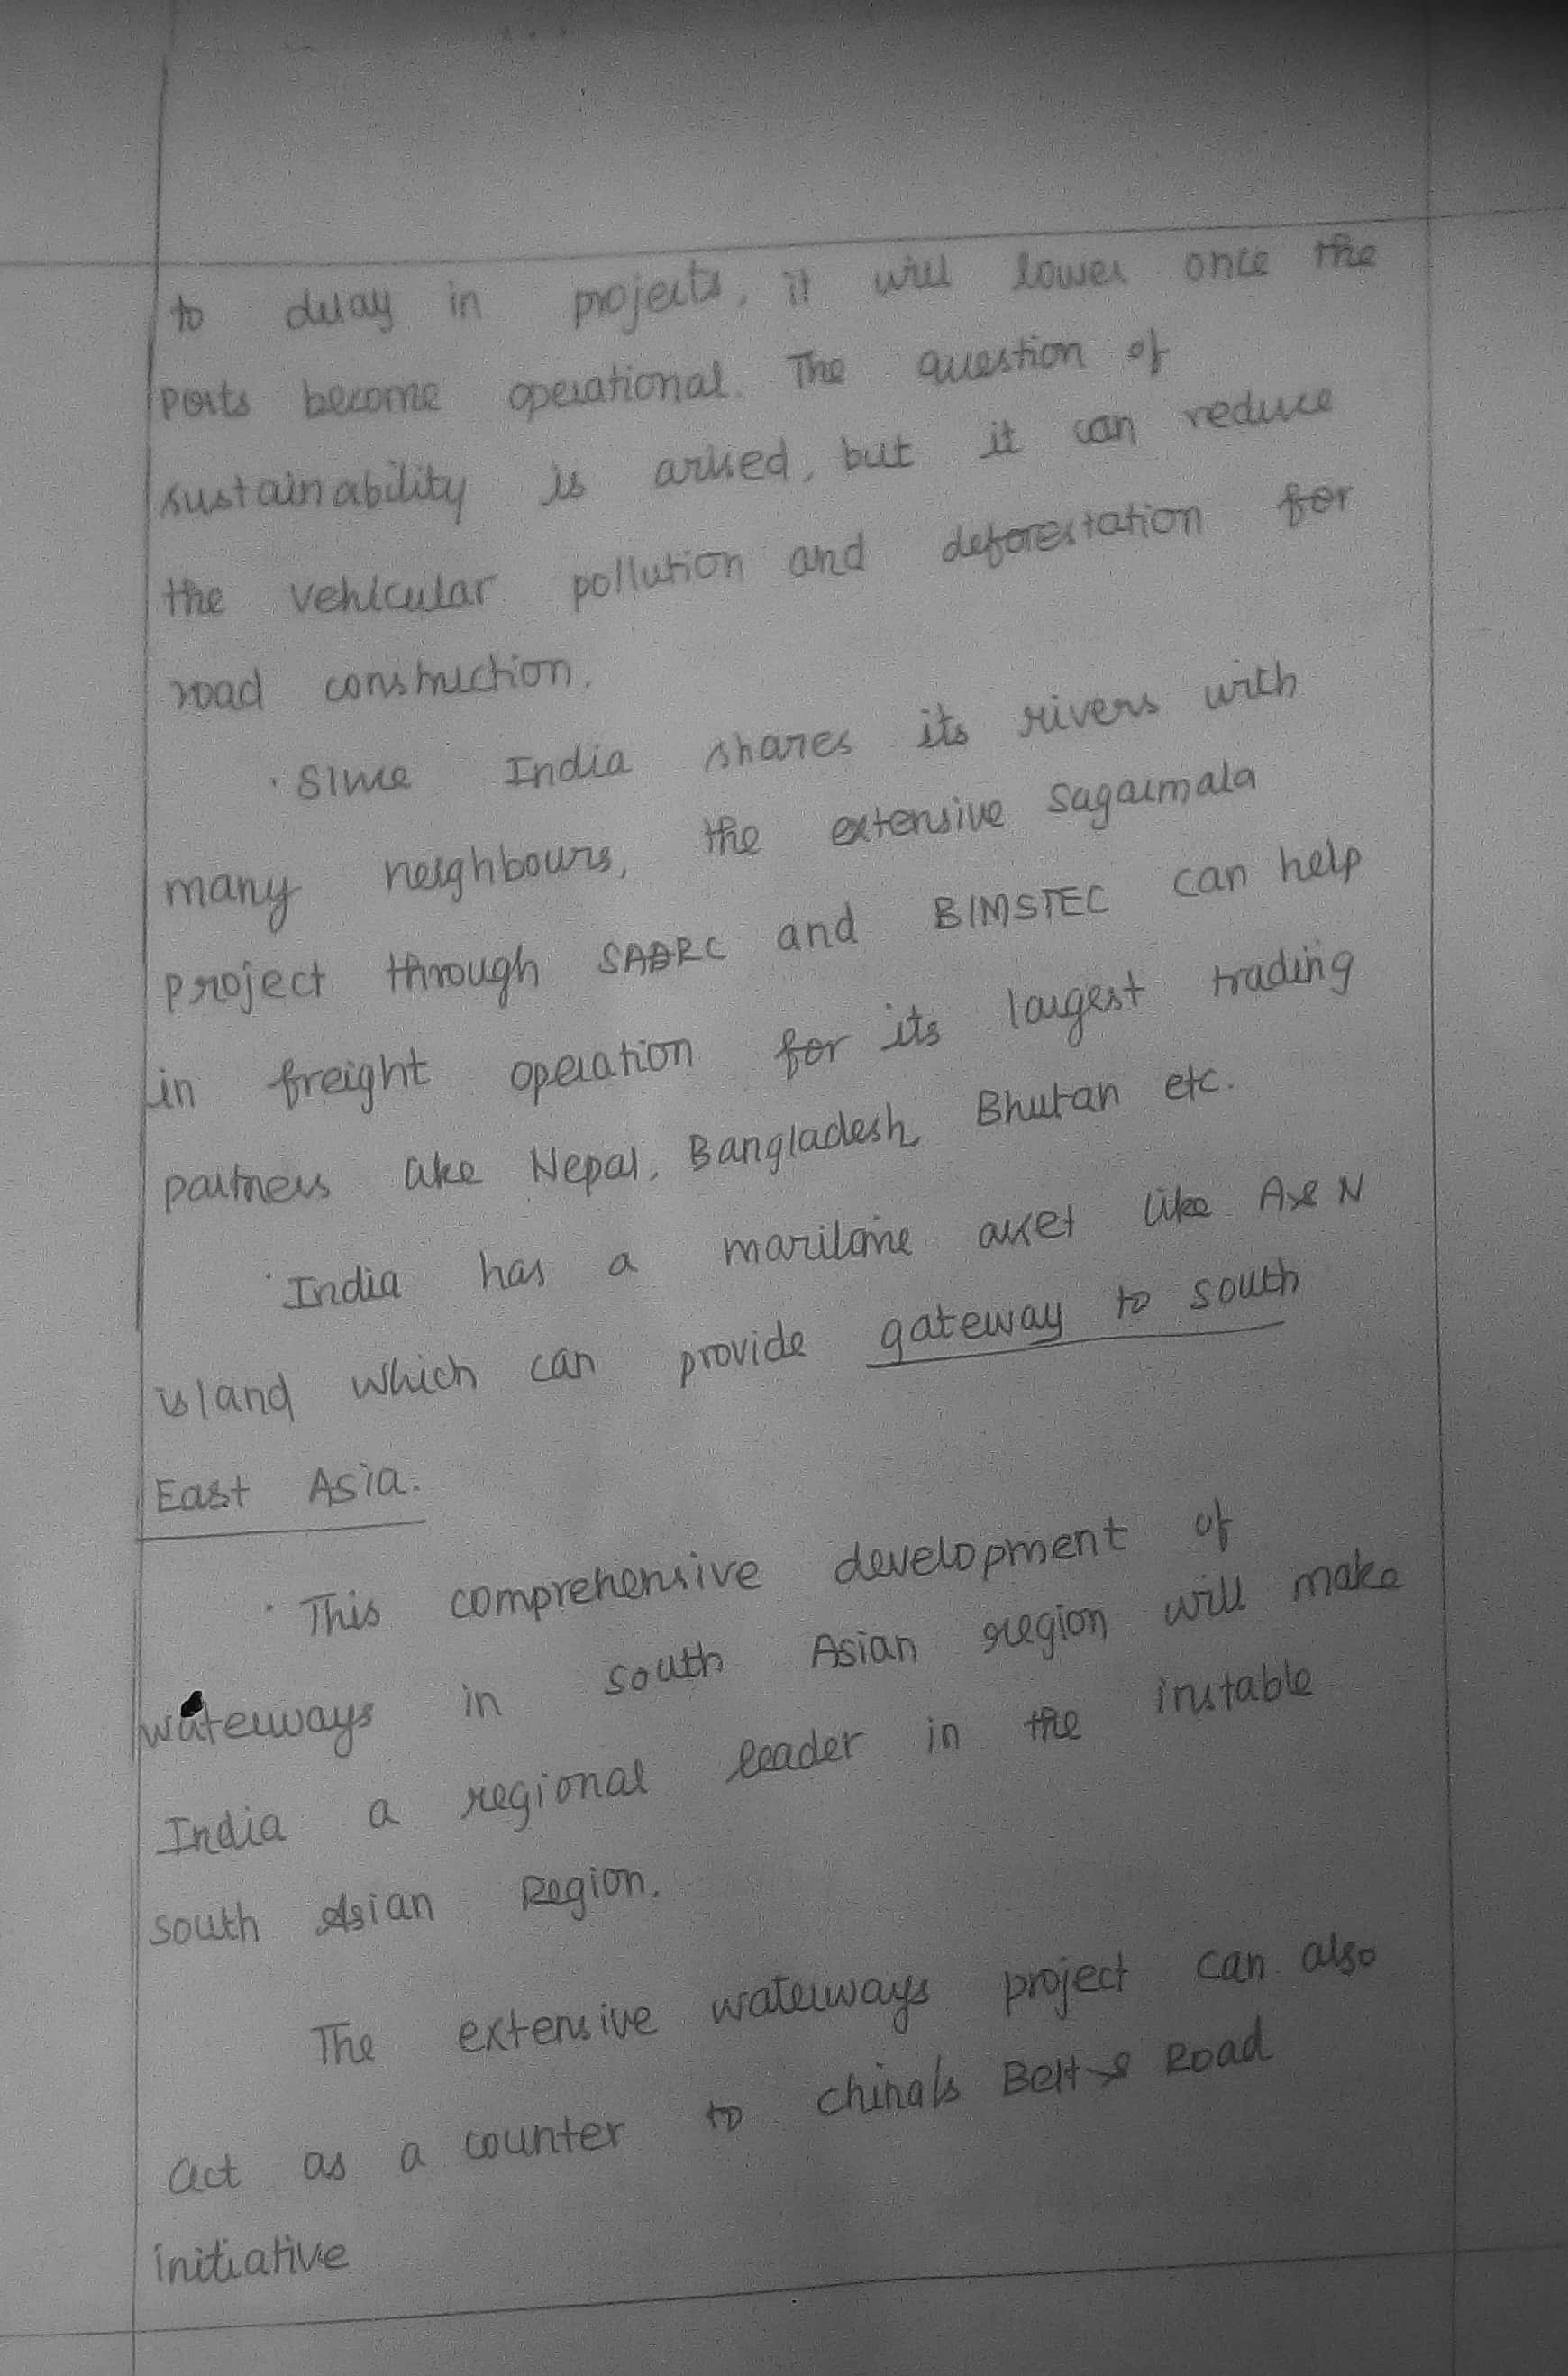 to delay in projects, it will lower once the
ports become operational. The question of
sustainability is arised, but it can reduce
the vehicular pollution and deforestation for
road construction.
· Since India shares its rivers with
many neighbours, the extensive Sagarmala
project through SAARC and BIMSTEC can help
in freight operation for its largest trading
partners like Nepal, Bangladesh, Bhutan etc.
· India has a maritime asset like A & N
island which can provide gateway to south
East Asia.
· This comprehensive development of
waterways in south Asian region will make
India a regional leader in the instable
south Asian Region.
The extensive waterways project can also
act as a counter to china's Belt & Road
initiative